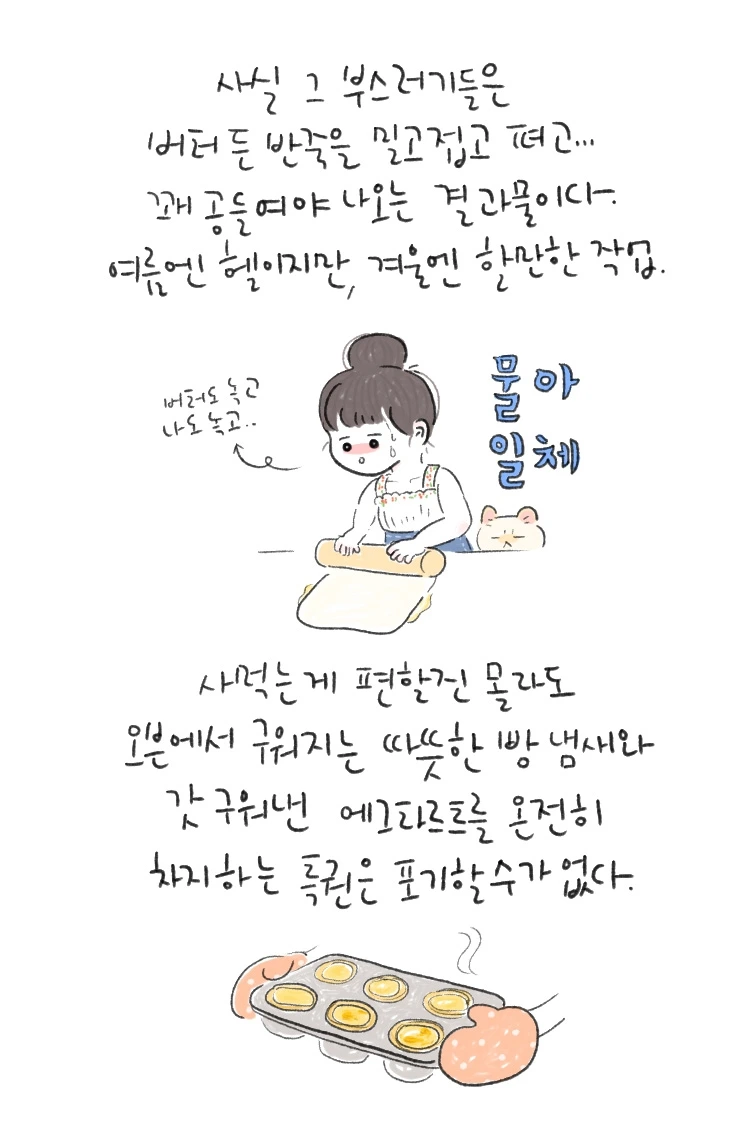 사실 그 부스러기들은
버터 든 반죽을 밀고 접고 펴고...
꽤 공들여야 나오는 결과물이다.
여름엔 헬이지만, 겨울엔 할만한 작업.
버터도 녹고
나도 녹고..
물아
일체
사먹는게 편할건 몰라도
오븐에서 구워지는 따뜻한 빵 냄새와
갓 구워낸 에그타르트를 온전히
차지하는 특권은 포기할 수가 없다.